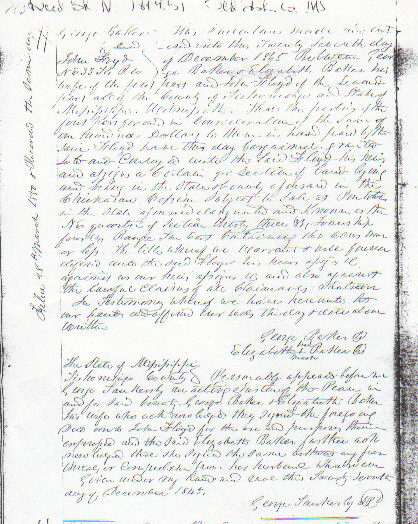 Deed Bk N 1849-51
George Baker This indenture made and ent
And and into this Twenty Seventh day
John Floyd of December 1845 Between Geor
NE 33 T4 R10 ge Baker & Elizabeth Baker his
wife of the first part and John Floyd of the Second
part all of the County of Tishomingo and State of
Mississippi Witnesseth That the parties of the
first part for and in Consideration of the Sum of
one Hundred Dollars to them in hand paid by the
said Floyd have this day bargained granted
Sold and Conveyed unto the Said Floyd his heirs
and assigns a Certain qr Section of Land lying
and being in the State & County aforesaid in the
Chickasaw Cession Subject to Sale at Pontotoc
in the State aforesaid designated and known as the
NE quarter of Section thirty three 33, Township
four 4 Range Ten East Containing 160 acres more
or less The title whereof we warrant & will forever
defend unto the said Floyd his heirs assigns &c
against us our heirs assigns &c and also against
the lawful Claims of all Claimants whatsoever
In Testimony whereof we have hereunto Set
our hands and affixed our seals the day & date above
written
George Baker
her
Elizabeth X Baker
mark
The State of Mississippi
Tishomingo County Personally appeared before me
George Baker & Elizabeth Baker
his wife who acknowledged they signed the foregoing
Deed unto John Floyd for the use and purposes therein
expressed and the Said Elizabeth Baker further ack
nowledged that she signed the Same without any fear
threat or Compulsion from her husband whatsoever
Given under my hand and seal this Twenty Seventh
day of December 1845.